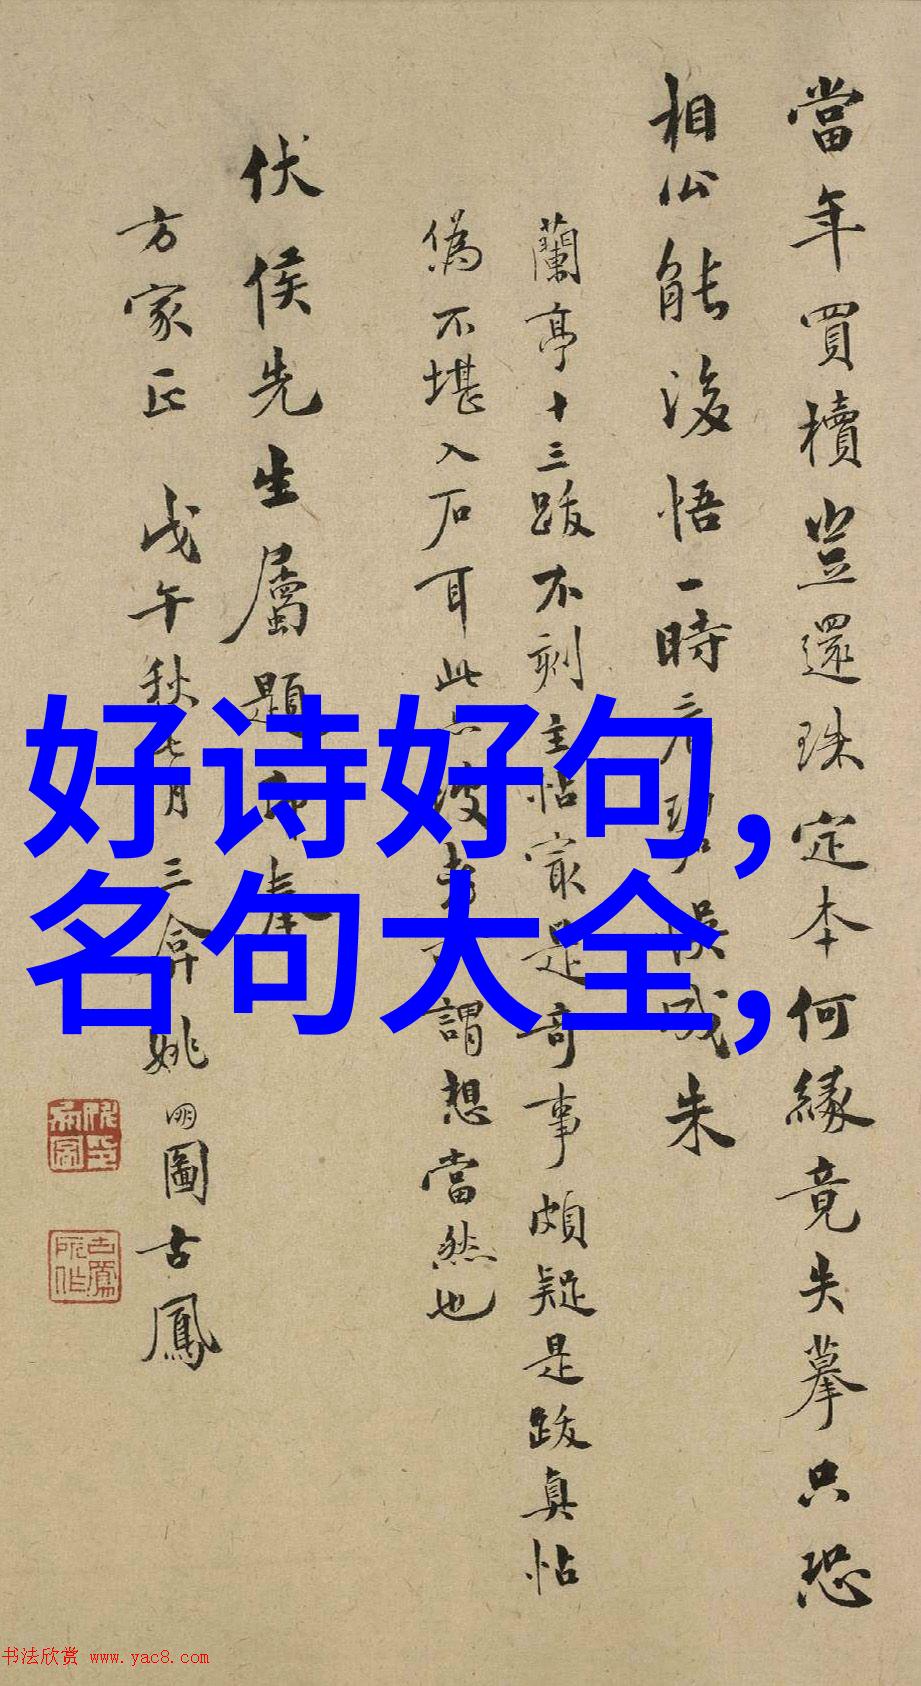 當年買櫝豈還珠定本何緣竟失摹只恐
相公能後悟一時元碧悞成朱
蘭亭十三跋不刻主帖寂是奇事頗疑是跋真帖
偽不堪入石耳此謂想當然也
伏侯先生屬題即奉
方家正 戊午秋七月三弇姚朙圖古鳳
好诗好句,
名句大全,
书法欣赏 www.yac8.com